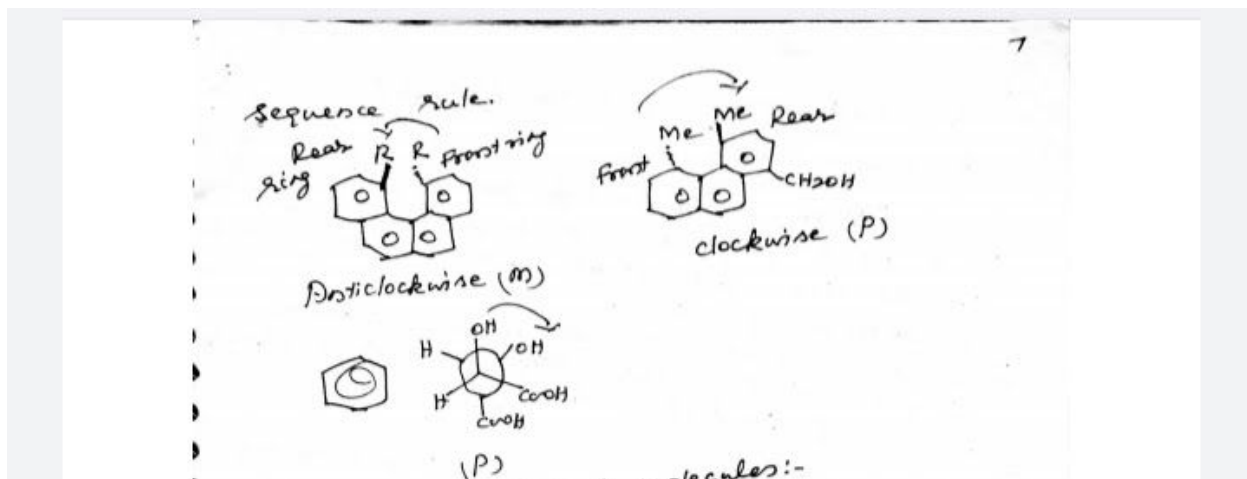 7
Sequence rule.
Rear ring
R R
Front ring
Anticlockwise (M)
Me Me Rear
Front
CH2OH
clockwise (P)
OH
H OH
H COOH
COOH
(P)
:-